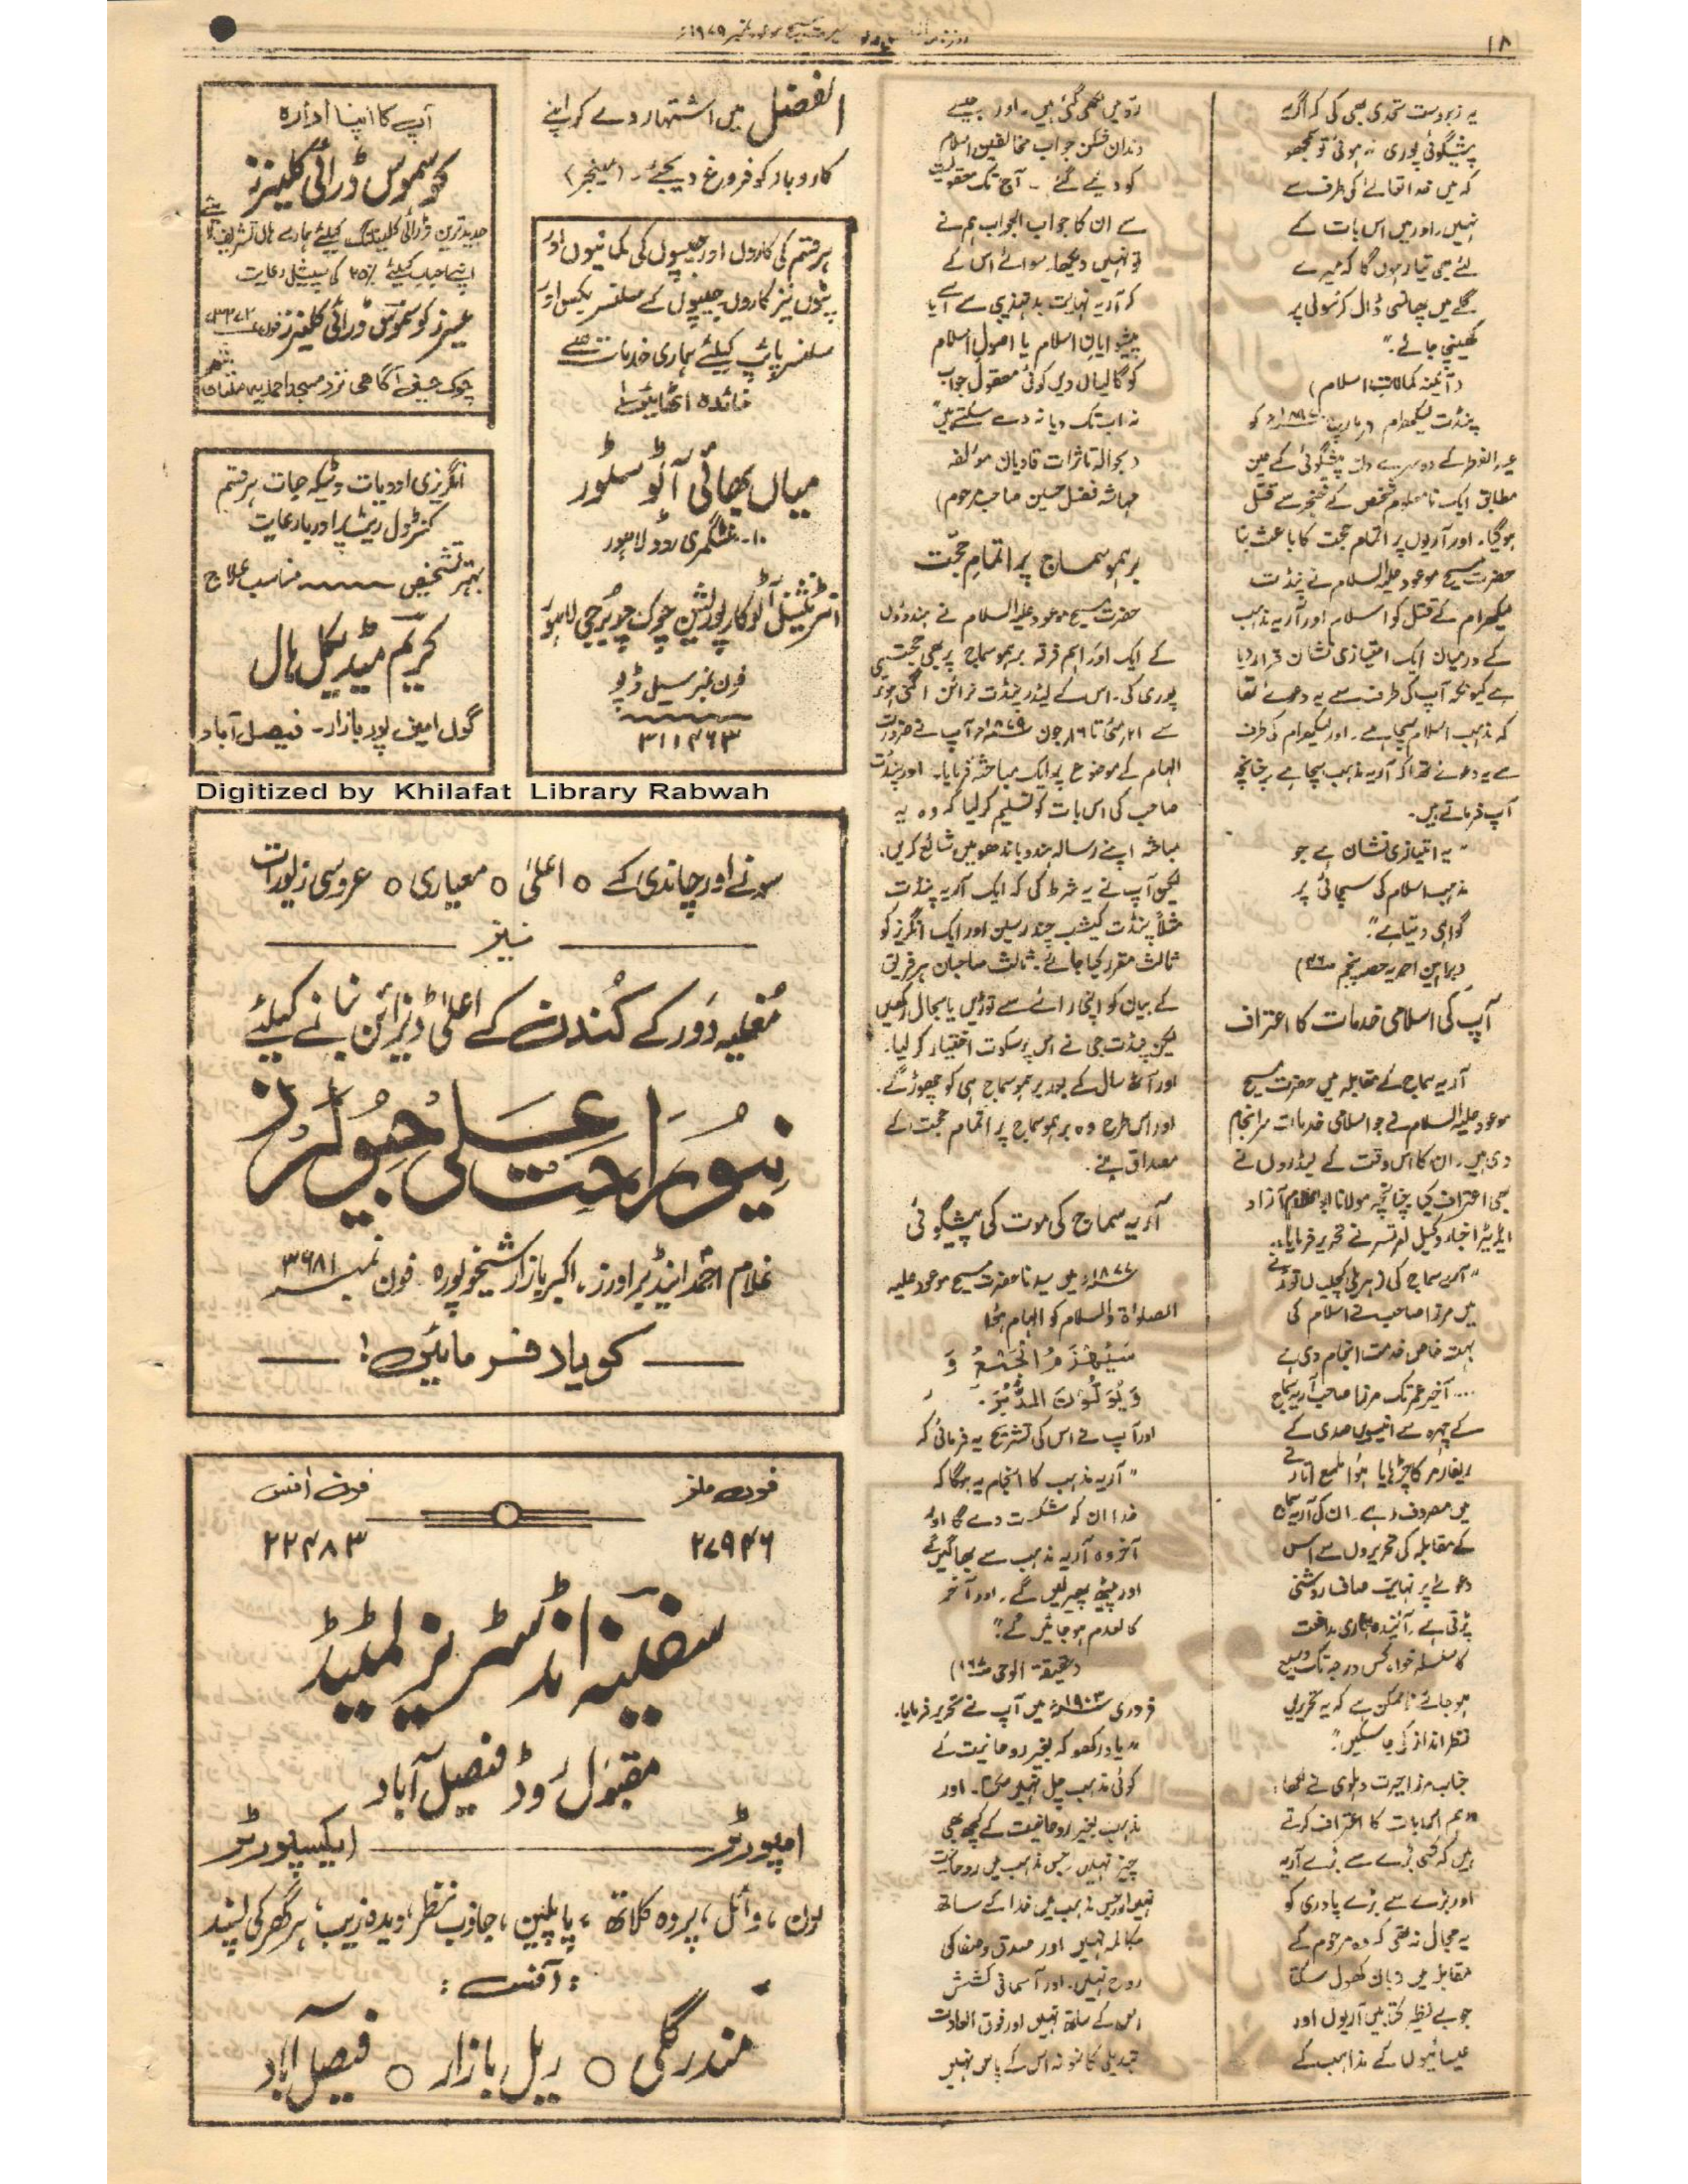 ۱۸
یہ زبردست تحدی بھی کی کہ اگر یہ
پیشگوئی پوری نہ ہوئی تو سمجھو
کہ میں خدا تعالےٰ کی طرف سے
نہیں۔ اور میں اس بات کے
لئے بھی تیار ہوں گا کہ میرے
گلے میں پھانسی ڈال کر سولی پر
کھینچی جائے۔"
(آئینہ کمالات اسلام)
پنڈت لیکھرام ۶ مارچ ۱۸۹۷ء کو
عید الفطر کے دوسرے دن پیشگوئی کے عین
مطابق ایک نامعلوم شخص کے خنجر سے قتل
ہوگیا۔ اور آریوں پر اتمام حجت کا باعث بنا
حضرت مسیح موعود علیہ السلام نے پنڈت
لیکھرام کے قتل کو اسلام اور آریہ مذہب
کے درمیان ایک امتیازی نشان قرار دیا
ہے کیونکہ آپ کی طرف سے یہ دعویٰ تھا
کہ مذہب اسلام سچا ہے۔ اور لیکھرام کی طرف
سے یہ دعوےٰ تھا کہ آریہ مذہب سچا ہے۔ چنانچہ
آپ فرماتے ہیں۔
"یہ امتیازی نشان ہے جو
مذہب اسلام کی سچائی پر
گواہی دیتا ہے۔"
(براہین احمدیہ حصہ پنجم ص)
آپ کی اسلامی خدمات کا اعتراف
آریہ سماج کے مقابلہ میں حضرت مسیح
موعود علیہ السلام نے جو اسلامی خدمات سرانجام
دی ہیں۔ ان کا اس وقت کے لیڈروں نے
بھی اعتراف کیا چنانچہ مولانا ابوالکلام آزاد
ایڈیٹر اخبار وکیل امرتسر نے تحریر فرمایا:۔
"آریہ سماج کی زہریلی کچلیاں توڑنے
میں مرزا صاحب نے اسلام کی
بہت خاص خدمت انجام دی ہے
.... آخیر عمر تک مرزا صاحب آریہ سماج
کے چہرہ سے انیسویں صدی کے
ریفارمر کا چڑھایا ہوا ملمع اتارنے
میں مصروف رہے۔ ان کی آریہ سماج
کے مقابلہ کی تحریروں سے اس
دعوے پر نہایت صاف روشنی
پڑتی ہے۔ آئندہ ہماری مدافعت
کا سلسلہ خواہ کس درجہ تک وسیع
ہو جائے ناممکن ہے کہ یہ تحریریں
نظر انداز کی جا سکیں۔"
جناب مرزا حیرت دہلوی نے لکھا:
"ہم اس بات کا اعتراف کرتے
ہیں کہ کسی بڑے سے بڑے آریہ
اور بڑے سے بڑے پادری کو
یہ مجال نہ تھی کہ وہ مرحوم کے
مقابلہ میں زبان کھول سکتا
جو بے نظیر کتابیں آریوں اور
عیسائیوں کے مذاہب کے
ردّ میں لکھی گئی ہیں۔ اور جیسے
دندان شکن جواب مخالفین اسلام
کو دیئے گئے۔ آج تک معقولیت
سے ان کا جواب الجواب ہم نے
تو نہیں دیکھا۔ سوائے اس کے
کہ آریہ نہایت بدتہذیبی سے اسے یا
پیشوایان اسلام یا اصول اسلام
کو گالیاں دیں کوئی معقول جواب
نہ اب تک دیا نہ دے سکتے ہیں"
(بحوالہ تاثرات قادیان مؤلفہ
مہاشہ فضل حسین صاحب مرحوم)
برہمو سماج پر اتمامِ حجّت
حضرت مسیح موعود علیہ السلام نے ہندوؤں
کے ایک اور اہم فرقہ برہمو سماج پر بھی حجت
پوری کی۔ اس کے لیڈر پنڈت نرائن اگنی ہوتری
سے ۲۱ مئی تا ۱۶ جون ۱۸۷۹ء آپ نے ضرورت
الہام کے موضوع پر ایک مباحثہ فرمایا۔ اور پنڈت
صاحب کی اس بات کو تسلیم کر لیا کہ وہ یہ
مباحثہ اپنے رسالہ ہندو باندھو میں شائع کریں۔
لیکن آپ نے یہ شرط کی کہ ایک آریہ پنڈت
مثلاً پنڈت کیشب چندر سین اور ایک انگریز کو
ثالث مقرر کیا جائے۔ ثالث صاحبان ہر فریق
کے بیان کو اپنی رائے سے توڑیں یا بحال رکھیں
لیکن پنڈت جی نے اس پر سکوت اختیار کر لیا۔
اور آٹھ سال کے بعد برہمو سماج ہی کو چھوڑ گئے۔
اور اس طرح وہ برہمو سماج پر اتمام حجت کے
مصداق بنے۔
آریہ سماج کی موت کی پیشگوئی
۱۸۷۷ء میں سیدنا حضرت مسیح موعود علیہ
الصلوٰۃ والسلام کو الہام ہوا
سَيُهْزَمُ الْجَمْعُ وَ
وَيُوَلُّوْنَ الدُّبُرَ۔
اور آپ نے اس کی تشریح یہ فرمائی کہ
"آریہ مذہب کا انجام یہ ہوگا کہ
خدا ان کو شکست دے گا اور
آخر وہ آریہ مذہب سے بھاگیں گے
اور پیٹھ پھیر لیں گے۔ اور آخر
کالعدم ہو جائیں گے۔"
(حقیقۃ الوحی ص۱۶۷)
فروری ۱۹۰۳ء میں آپ نے تحریر فرمایا۔
"یاد رکھو کہ بغیر روحانیت کے
کوئی مذہب چل نہیں سکتا۔ اور
مذہب بغیر روحانیت کے کچھ بھی
چیز نہیں۔ جس مذہب میں روحانیت
نہیں اور جس مذہب میں خدا کے ساتھ
مکالمہ نہیں اور صدق و صفا کی
روح نہیں۔ اور آسمانی کشش
اس کے ساتھ نہیں اور فوق العادت
تبدیلی کا نمونہ اس کے پاس نہیں
الفضل میں اشتہار دے کر اپنے
کاروبار کو فروغ دیجئے۔ (مینجر)
ہر قسم کی کاروں اور جیپوں کی کمانیوں اور
پٹوں نیز کاروں جیپوں کے سلنسر بکس اور
سلنسر پائپ کیلئے ہماری خدمات سے
فائدہ اٹھائیں!
میاں بھائی آٹو سٹور
۱۰۔ منٹگمری روڈ لاہور
انٹرنیشنل آٹو کارپوریشن چوک چوبرجی لاہور
فون نمبر سیل ڈپو
۳۱۱۴۶۳
آپ کا اپنا ادارہ
کوسموس ڈرائی کلینرز
جدید ترین ڈرائی کلیننگ کیلئے ہمارے ہاں تشریف لائیے
اپنے احباب کیلئے ۲۵٪ کی سپیشل رعایت
عزیز کوسموس ڈرائی کلینرز فون
چوک حسین آگاهی نزد مسجد احمدیہ ملتان شہر
انگریزی ادویات و ٹیکہ جات ہر قسم
کنٹرول ریٹ پر اور بارعایت
بہتر تشخیص مناسب علاج
کریم میڈیکل ہال
گول امین پور بازار۔ فیصل آباد
Digitized by Khilafat Library Rabwah
سونے اور چاندی کے ○ اعلیٰ ○ معیاری ○ عروسی زیورات
نیز
مُغلیہ دَور کے کُندن کے اعلیٰ ڈیزائن بنانے کیلئے
نیو راحت علی جیولرز
غلام احمد اینڈ برادرز، اکبر بازار شیخوپورہ۔ فون نمبر ۳۶۸۱
کو یاد فرمائیں!
فون ملز
فون آفس
۲۷۹۴۶
۲۲۴۸۳
سفینہ انڈسٹریز لمیٹڈ
مقبول روڈ فیصل آباد
امپورٹر ایکسپورٹر
لون، وائل، پردہ کلاتھ، پاپلین، جاذب نظر، دیدہ زیب، ہر گھر کی پسند
:آفس:
مندر گلی ○ ریل بازار ○ فیصل آباد